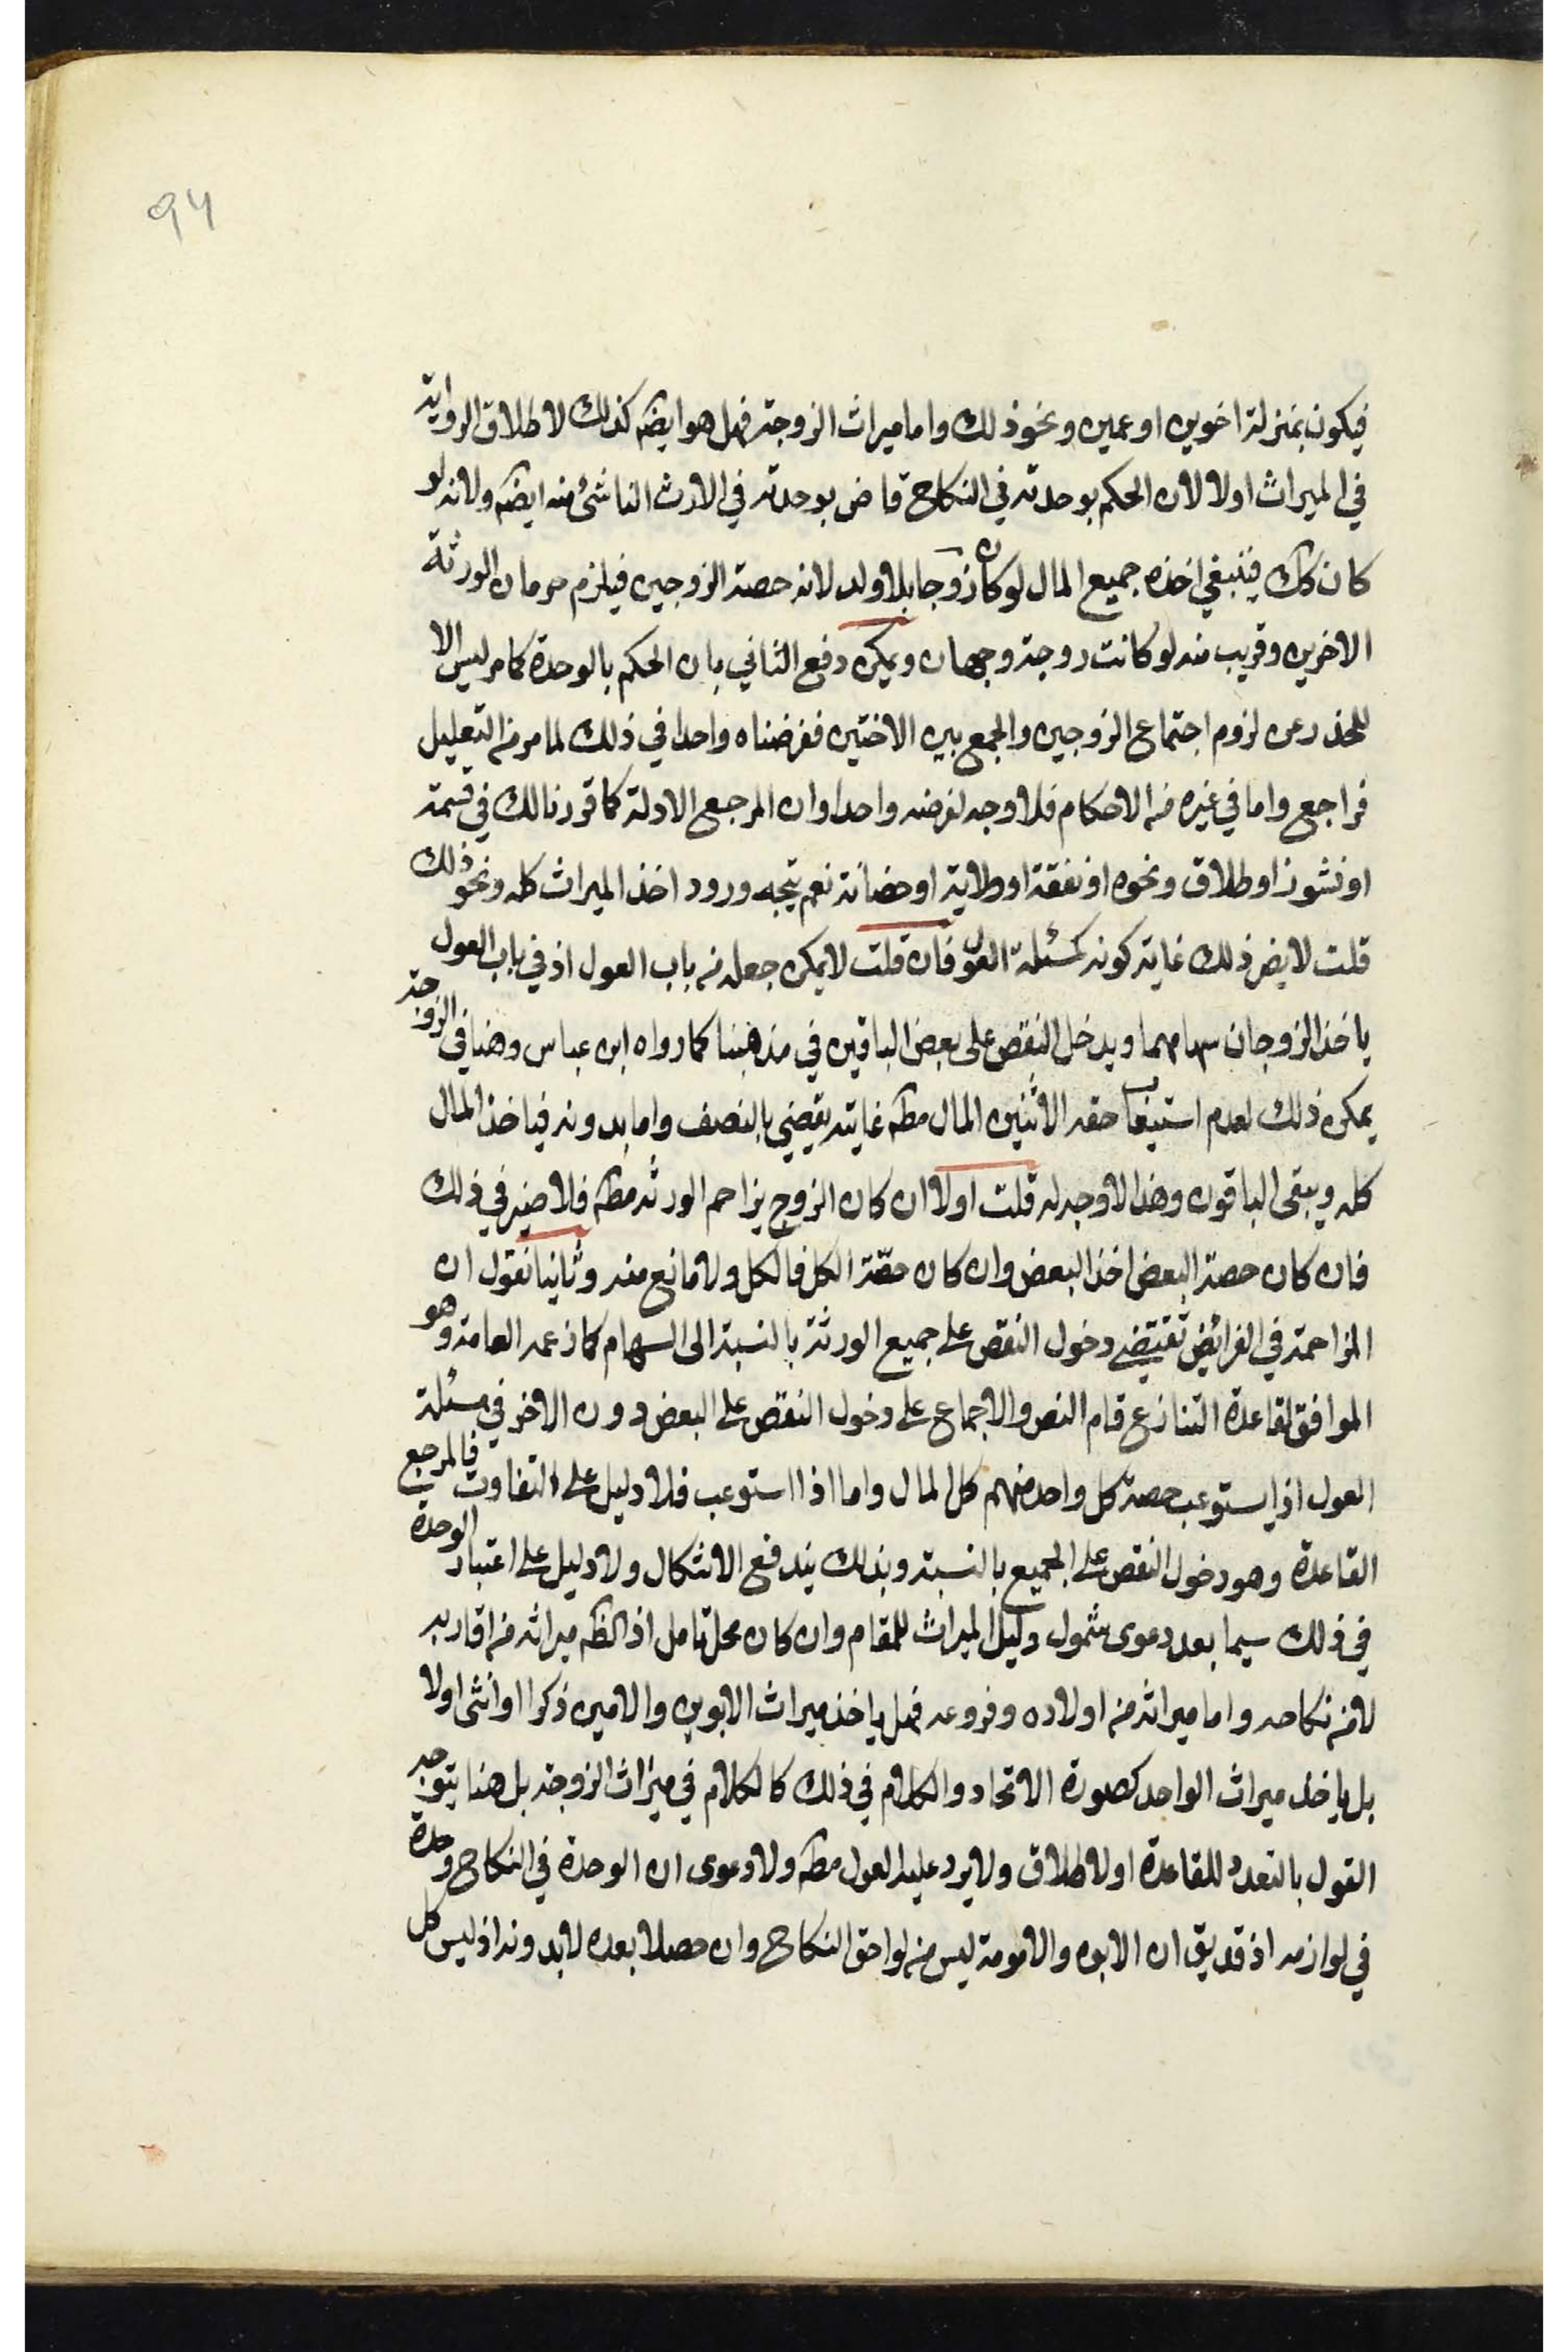 94
فيكون بمنزلة اخوين او عمين ونحو ذلك واما ميراث الزوجة فهل هو ايضه كذلك لاطلاق الرواية
في الميراث اولا لان الحكم بوحدته في النكاح قاض بوحدته في الارث الناشئ منه ايضه ولانه لو
كان كك فينبغي اخذه جميع المال لو كان زوجا بلا ولد لانه حصة الزوجين فيلزم حرمان الورثة
الاخرين وقريب منه لو كانت زوجة وجهان ويمكن دفع الثاني بان الحكم بالوحدة كما مر ليس الا
للحذر عن لزوم اجتماع الزوجين والجمع بين الاختين ففرضناه واحدا في ذلك لما مر من التعليل
فراجع واما في غيره من الاحكام فلا وجه لفرضه واحدا وان المرجع الادلة كما قررنا لك في قسمة
او نشوز او طلاق ونحوه او نفقة او ولاية او حضانة نعم يتجه ورود اخذ الميراث كله ونحو ذلك
قلت لا يضر ذلك غايته كونه كمسئلة العول فان قلت لا يمكن جعله من باب العول اذ في باب العول
ياخذ الزوجان سهامهما ويدخل النقص على بعض الباقين في مذهبنا كما رواه ابن عباس وهنا في الزوجة
يمكن ذلك لعدم استيعاب حقه الاثنين المال مطه غايته يقضي بالنصف واما بدونه فياخذ المال
كله ويبقى الباقون وهذا لا وجه له قلت اولا ان كان الزوج يزاحم الورثة مطه فلا ضير في ذلك
فان كان حصة البعض اخذ البعض وان كان حصّة الكل فالكل ولا مانع منه وثانيا نقول ان
المزاحمة في الفرائض تقتضي دخول النقص على جميع الورثة بالنسبة الى السهام كما زعمه العامة وهو
الموافق لقاعدة التنازع قام النص والاجماع على دخول النقص على البعض دون الاخر في مسئلة
العول اذ ايستوعب حصة كل واحد منهم كل المال واما اذا استوعب فلا دليل على التفاوت فالمرجع
القاعدة وهو دخول النقص على الجميع بالنسبة وبذلك يندفع الاشكال ولا دليل على اعتبار الوحدة
في ذلك سيما بعد دعوى شمول دليل الميراث للمقام وان كان محل تامل اذ الظه ميراثه من اقاربه
لا من نكاحه واما ميراثه من اولاده وفروعه فهل ياخذ ميراث الابوين والامين ذكرا او انثى اولا
بل ياخذ ميراث الواحد كصورة الاتحاد والكلام في ذلك كالكلام في ميراث الزوجة بل هنا يتوجه
القول بالتعدد للقاعدة او لاطلاق ولا يرد عليه العول مطه ولا دعوى ان الوحدة في النكاح وحدة
في لوازمه اذ قد يق ان الابوه والامومة ليس من لواحق النكاح وان حصلا بعده لا بدونه اذ ليس كل